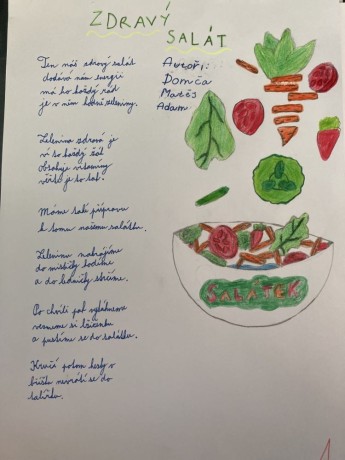 ZDRAVÝ
SALÁT
Autoři:
Domča
Matěs
Adam
Ten náš zdravý salát
dodává nám energii
má ho každý rád
je v něm hodně zeleniny.
Zelenina zdravá je
ví to každý žák
obsahuje vitamíny
věřte je to tak.
Máme také přípravu
k tomu našemu salátku.
Zeleninu nakrájíme
do mističky hodíme
a do ledničky strčíme.
Po chvíli pak vytáhneme
vezmeme si lžičku
a pustíme se do salátku.
Kručí potom
břiše nevrátí se do
talířku.
SALÁTEK